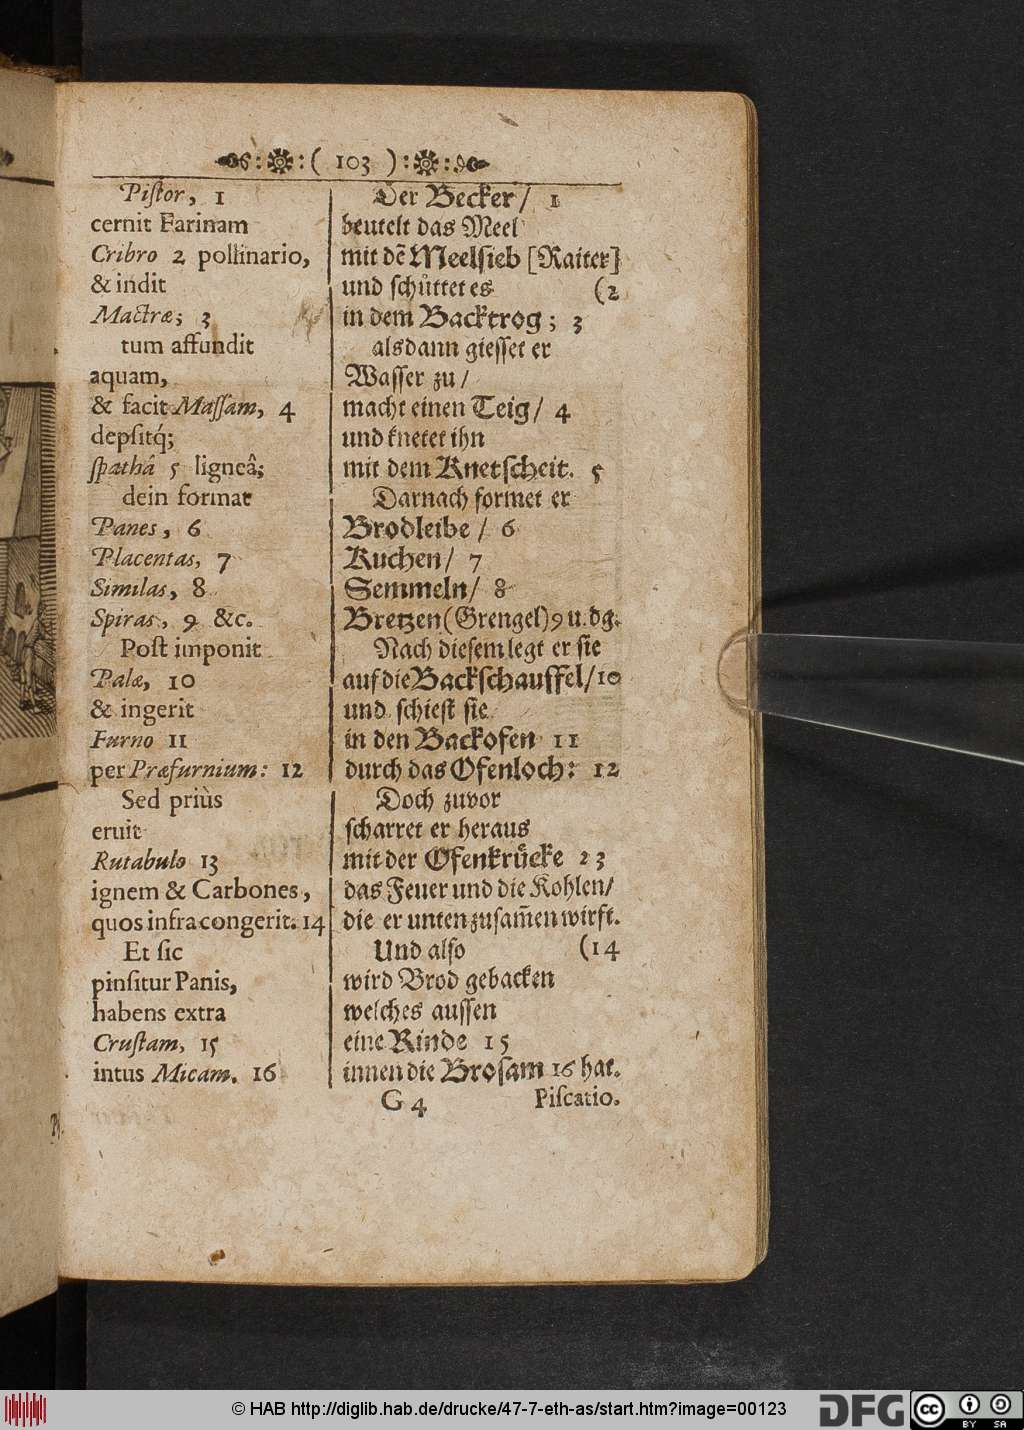 :( 103 ):
Pistor, 1
cernit Farinam
Cribro 2 pollinario,
& indit
Mactræ; 3
tum affundit
aquam,
& facit Massam, 4
depsitq́;
spathâ 5 ligneâ;
dein format
Panes, 6
Placentas, 7
Similas, 8
Spiras, 9 &c.
Post imponit
Palæ, 10
& ingerit
Furno 11
per Præfurnium: 12
Sed priùs
eruit
Rutabulo 13
ignem & Carbones,
quos infra congerit. 14
Et sic
pinsitur Panis,
habens extra
Crustam, 15
intus Micam. 16
Der Becker / 1
beutelt das Meel
mit dẽ Meelsieb [Raiter]
und schüttet es (2
in dem Backtrog; 3
alsdann giesset er
Wasser zu /
macht einen Teig / 4
und knetet ihn
mit dem Knetscheit. 5
Darnach formet er
Brodleibe / 6
Kuchen / 7
Semmeln / 8
Bretzen (Grengel) 9 u. dg.
Nach diesem legt er sie
auf die Backschauffel / 10
und schiest sie
in den Backofen 11
durch das Ofenloch: 12
Doch zuvor
scharret er heraus
mit der Ofenkrücke 23
das Feuer und die Kohlen /
die er unten zusam̃en wirft.
Und also (14
wird Brod gebacken
welches aussen
eine Rinde 15
innen die Brosam 16 hat.
G 4 Piscatio.
© HAB http://diglib.hab.de/drucke/47-7-eth-as/start.htm?image=00123
DFG
cc BY SA